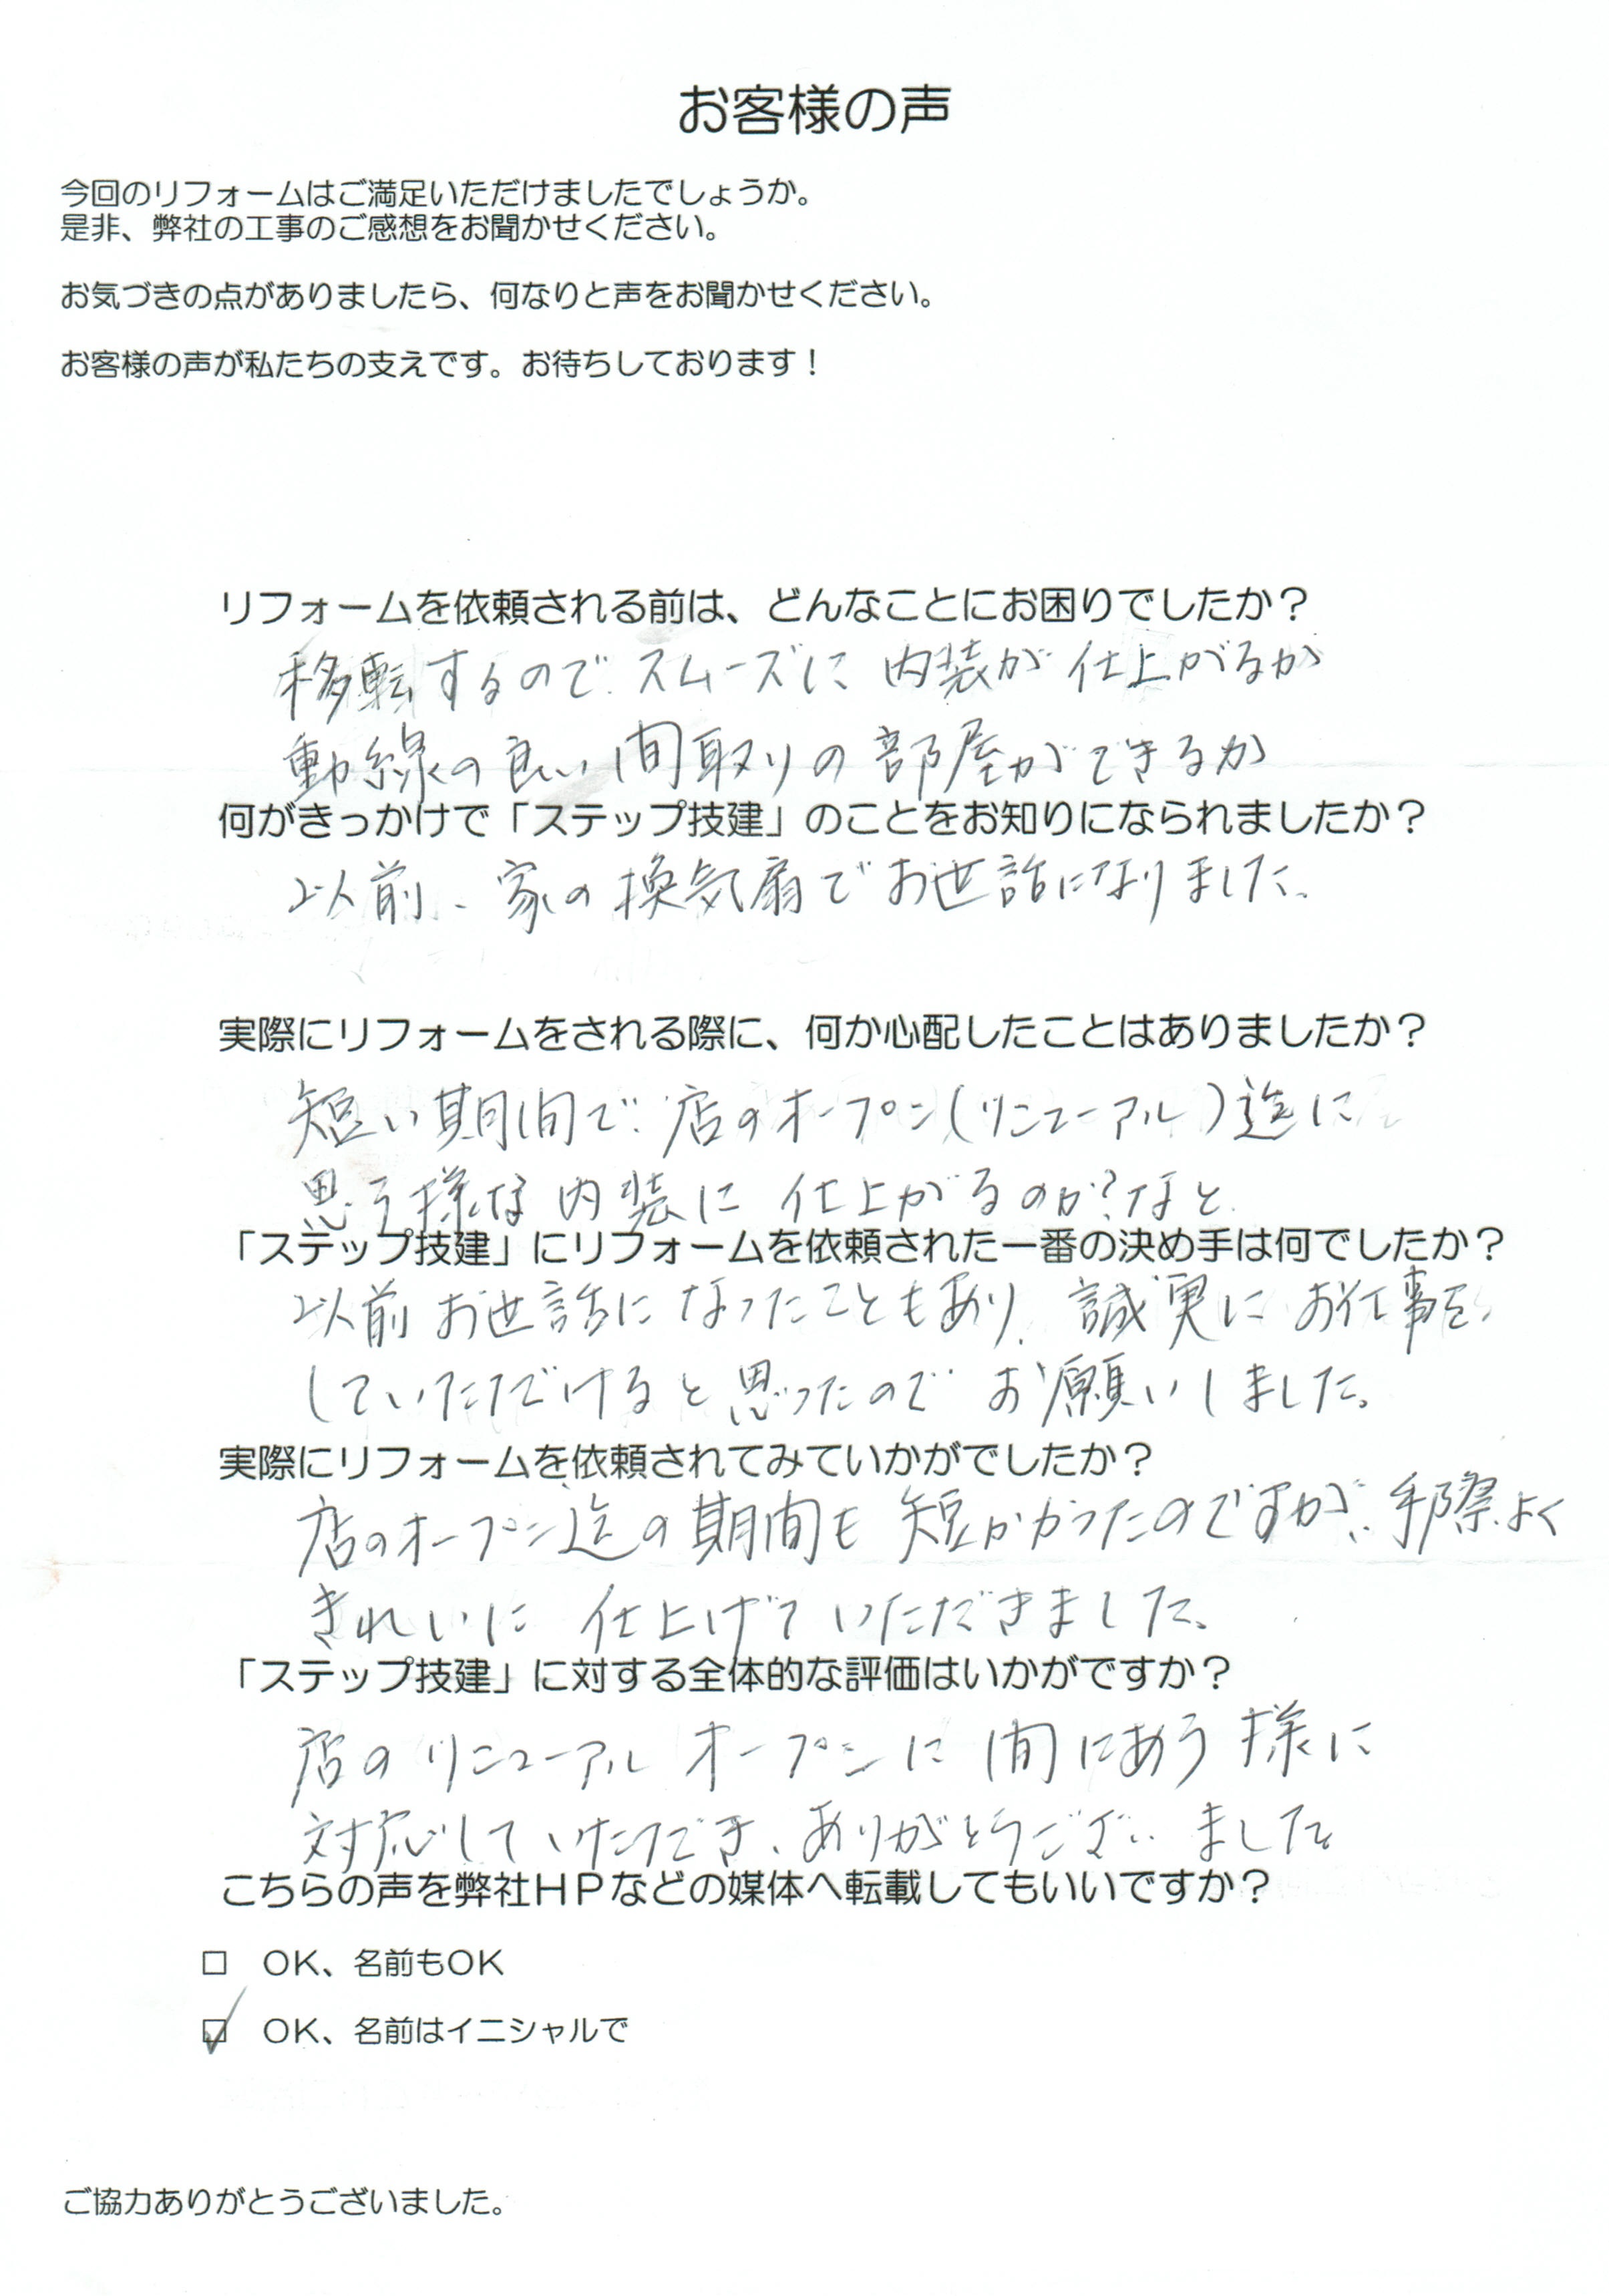 お客様の声
今回のリフォームはご満足いただけましたでしょうか。
是非、弊社の工事のご感想をお聞かせください。
お気づきの点がありましたら、何なりと声をお聞かせください。
お客様の声が私たちの支えです。お待ちしております！
リフォームを依頼される前は、どんなことにお困りでしたか？
移転するので、スムーズに 内装が 仕上がるか
動線の良い間取りの部屋ができるか
何がきっかけで「ステップ技建」のことをお知りになられましたか？
以前、家の換気扇でお世話になりました。
実際にリフォームをされる際に、何か心配したことはありましたか？
短い期間で、店のオープン(リニューアル)迄に
思う様な内装に 仕上がるのか?など
「ステップ技建」にリフォームを依頼された一番の決め手は何でしたか？
以前お世話になったこともあり、誠実にお仕事を
していただけると思ったので お願いしました。
実際にリフォームを依頼されてみていかがでしたか？
店のオープン迄の期間も短かかったのですが、手際よく
きれいに 仕上げていただきました。
「ステップ技建」に対する全体的な評価はいかがですか？
店のリニューアルオープンに間にあう様に
対応していただき、ありがとうございました
こちらの声を弊社ＨＰなどの媒体へ転載してもいいですか？
□ ＯＫ、名前もＯＫ
☑ ＯＫ、名前はイニシャルで
ご協力ありがとうございました。